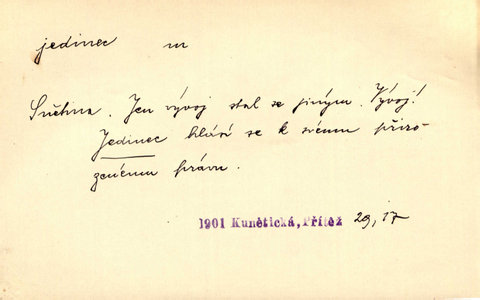 jedinec m
Sněhna. Jen vývoj stal se jiným. Vývoj!
Jedinec hlásí se k svému přiro-
zenému právu.
1901 Kunětická, Přítěž 29, 17